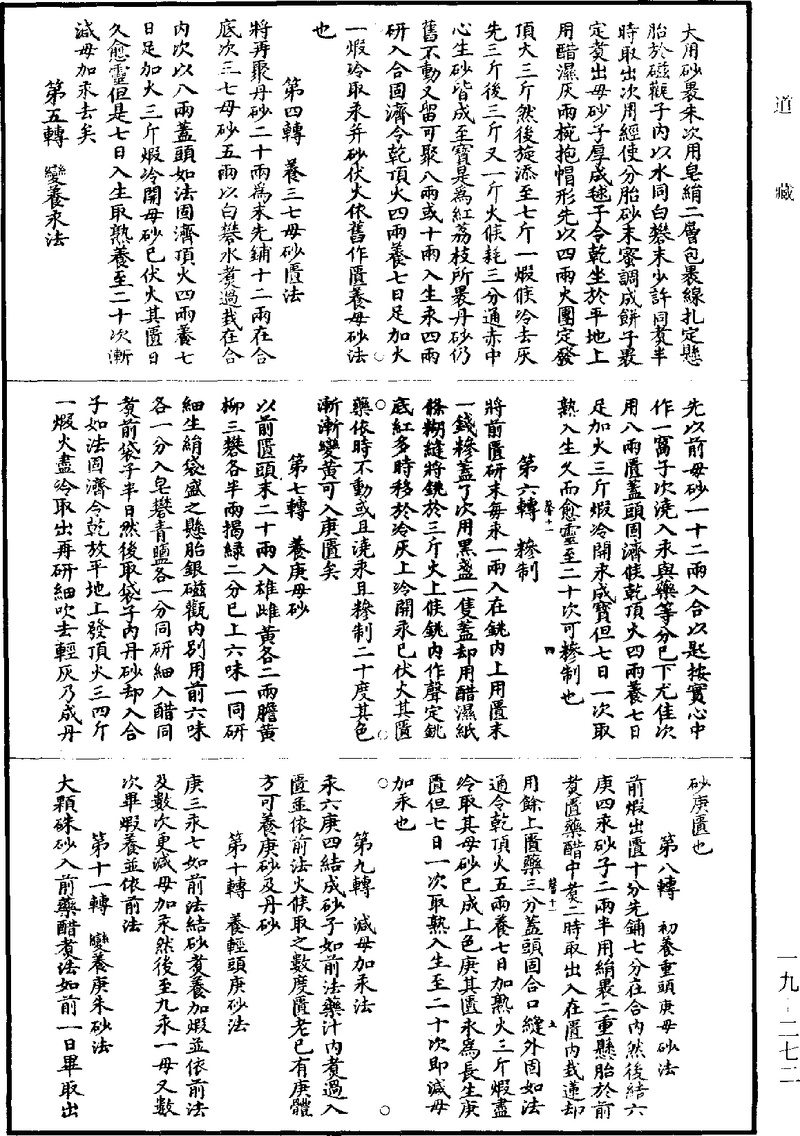 道藏
大用砂裹朱次用皂絹二層包裹線扎定懸
胎於磁觀子內以水同白礬末少許同煮半
時取出次用經使分胎砂末蜜調成餅子裹
定煮出母砂子厚成毬子令乾坐於平地上
用醋濕灰兩椀抱帽形先以四兩火團定發
頂火三斤然後旋添至七斤一煆候冷去灰
先三斤後三斤又一斤火候耗三分通赤中
心生砂皆成至寶是為紅荔枝所裹丹砂仍
舊不動又留可聚八兩或十兩入生汞四兩
研入合固濟令乾頂火四兩養七日足加火
一煆冷取汞并砂伏火依舊作匱養母砂法
也
第四轉 養三七母砂匱法
將再聚丹砂二十兩為末先鋪十二兩在合
底次三七母砂五兩以白礬水煮過栽在合
內次以八兩蓋頭如法固濟頂火四兩養七
日足加火三斤煆冷開母砂已伏火其匱日
久愈靈但是七日入生取熟養至二十次漸
減母加汞去矣
第五轉 變養汞法
先以前母砂一十二兩入合以匙按實心中
作一窩子次澆入汞與藥等分已下尤佳次
用八兩匱蓋頭固濟候乾頂火四兩養七日
足加火三斤煆冷開汞成寶但七日一次取
熟入生久而愈靈至二十次可糝制也
第六轉 糝制
將前匱研末每汞一兩入在銚內上用匱末
一錢糝蓋了次用黑盞一隻蓋却用醋濕紙
條糊縫將銚於三斤火上候銚內作聲定銚
底紅多時移於冷灰上冷開汞已伏火其匱
藥依時不動或且澆汞且糝制二十度其色
漸漸變黃可入庚匱矣
第七轉 養庚母砂
以前匱頭末二十兩入雄雌黃各二兩膽黃
柳三礬各半兩揭綠二分已上六味一同研
細生絹袋盛之懸胎銀磁觀內別用前六味
各一分入皂礬青鹽各一分同研細入醋同
煮前袋子半日然後取袋子內丹砂却入合
子如法固濟令乾放平地上發頂火三四斤
一煆火盡冷取出再研細吹去輕灰乃成丹
砂庚匱也
第八轉 初養重頭庚母砂法
前煆出匱十分先鋪七分在合內然後結六
庚四汞砂子二兩半用絹裹二重懸胎於前
煮匱藥醋中煮二時取出入在匱內栽蓮却
用餘上匱藥三分蓋頭固合口縫外固如法
通令乾頂火五兩養七日加熟火三斤煆盡
冷取其母砂已成上色庚其匱永為長生庚
匱但七日一次取熟入生至二十次即減母
加汞也
第九轉 減母加汞法
汞六庚四結成砂子如前法藥汁內煮過入
匱並依前法火候取之數度匱老已有庚體
方可養庚砂及丹砂
第十轉 養輕頭庚砂法
庚三汞七如前法結砂煮養加煆並依前法
及數次更減母加汞然後至九汞一母又數
次畢煆養並依前法
第十一轉 變養庚朱砂法
大顆硃砂入前藥醋煮法如前一日畢取出
一九·二七二